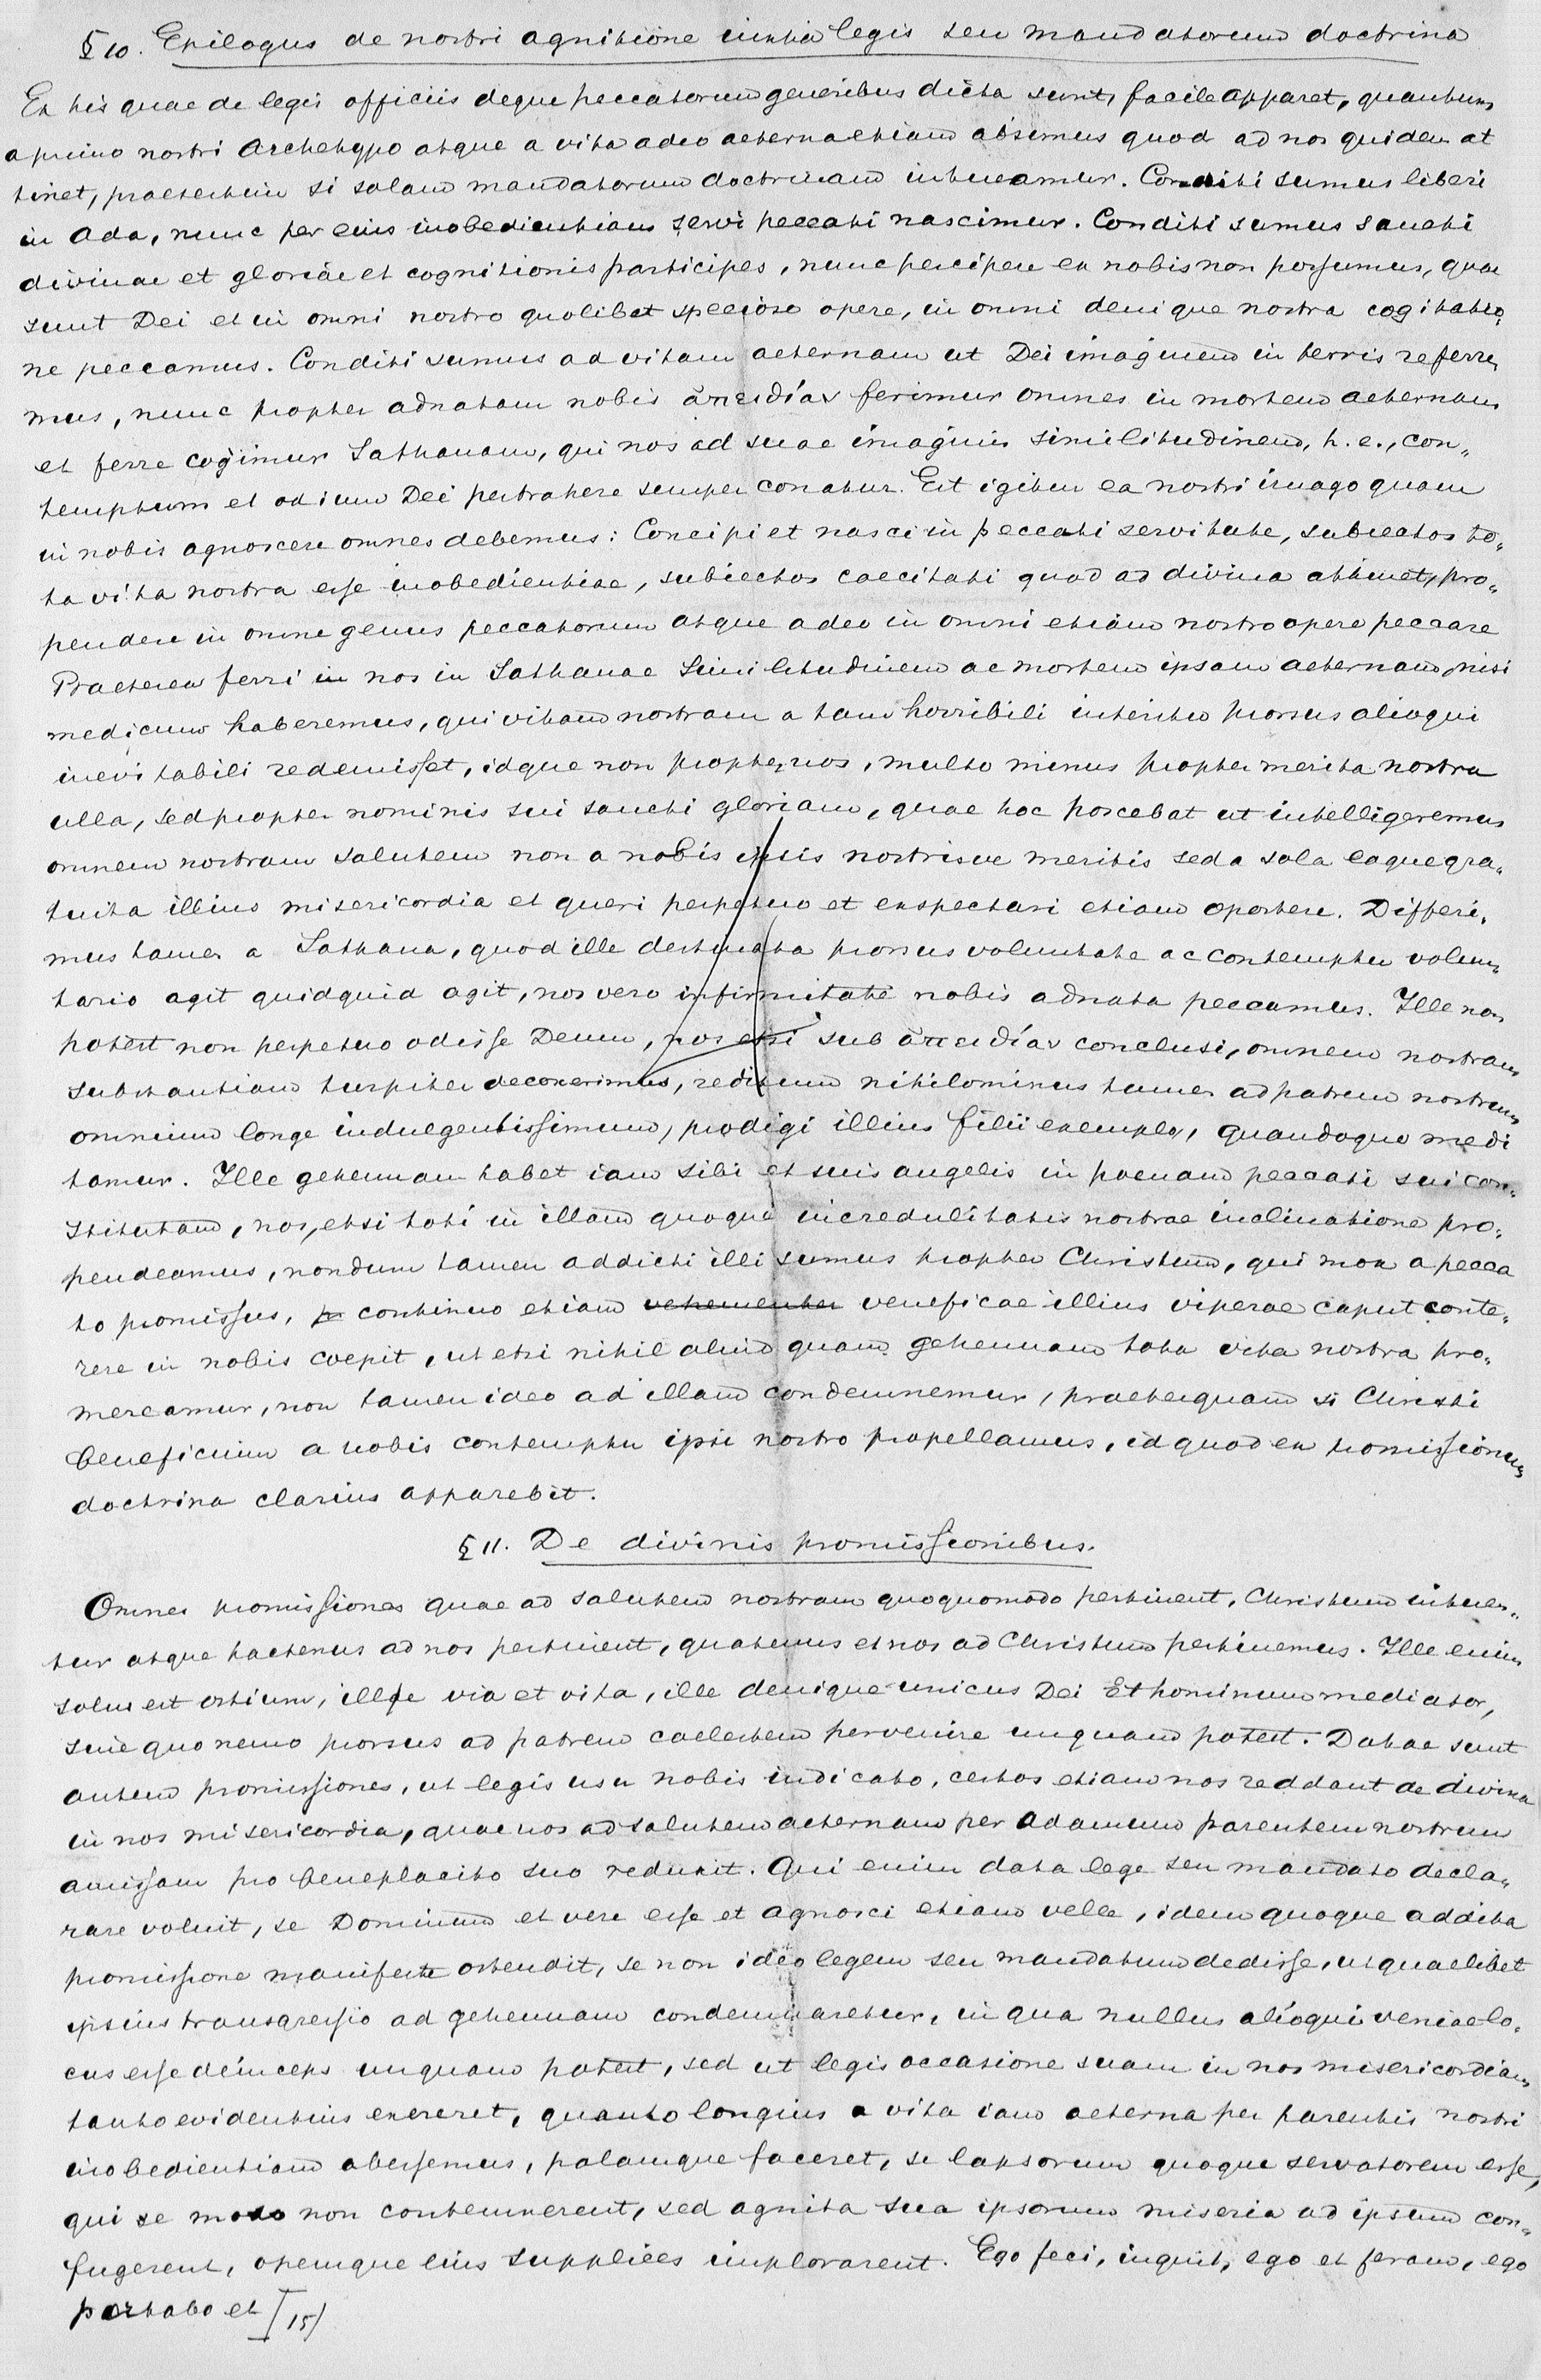 § 10. Epilogus de nostri agnitione iuxta legis seu mandatorum doctrina
Ex his quae de legis officiis deque peccatorum generibus dicta sunt, facile apparet, quantum
a primo nostri Archetypo atque a vita adeo aeterna etiam absimus quod ad nos quidem at
tinet, praesertim si solam mandatorum doctrinam intueamur. Conditi sumus liberi
in Ada, nunc per eius inobedientiam servi peccati nascimur. Conditi sumus sancti
divinae et gloriae et cognitionis participes, nunc percipere ex nobis non possumus, quae
sunt Dei et in omni nostro quolibet specioso opere, in omni denique nostra cogitatio„
ne peccamus. Conditi sumus ad vitam aeternam ut Dei imaginem in terris referre
mus, nunc propter adnatam nobis ἀπειθίαν ferimur omnes in mortem aeternam
et ferre cogimur Sathanam, qui nos ad suae imaginis similitudinem, h. e., con„
temptum et odium Dei pertrahere semper conatur. Est igitur ea nostri imago quam
in nobis agnoscere omnes debemus: Concipi et nasci in peccati servitute, subiectos to„
ta vita nostra esse inobedientiae, subiectos caecitati quod ad divina attinet, pro„
pendere in omne genus peccatorum atque adeo in omni etiam nostro opere peccare
Praeterea ferri in nos in Sathanae similitudinem ac mortem ipsam aeternam, nisi
medicum haberemus, qui vitam nostram a tam horribili interitu prorsus alioqui
inevitabili redemisset, idque non propter nos, multo minus propter merita nostra
ulla, sed propter nominis sui sancti gloriam, quae hoc poscebat ut intelligeremus
omnem nostram salutem non a nobis ipsis nostrisve meritis sed a sola eaque gra„
tuita illius misericordia et queri perpetuo et exspectari etiam oportere. Differi„
mus tamen a Sathana, quod ille destinata prorsus voluntate ac contemptu volun„
tario agit quidquid agit, nos vero infirmitate nobis adnata peccamus. Ille non
potest non perpetuo odisse Deum, nos etsi sub ἀπειθίαν conclusi, omnem nostram
substantiam turpiter decoxerimus, reditum nihilominus tamen ad patrem nostrum
omnium longe indulgentissimum, prodigi illius filii exemplo, quandoque medi
tamur. Ille gehennam habet iam sibi et suis angelis in poenam peccati sui con„
stitutam, nos, etsi toti in illam quoque incredulitatis nostrae inclinatione pro„
pendeamus, nondum tamen addicti illi sumus propter Christum, qui mox a pecca
to promissus, continuo etiam vehementer veneficae illius viperae caput conte„
rere in nobis coepit, ut etsi nihil aliud quam gehennam tota vita nostra pro„
mereamur, non tamen ideo ad illam condemnemur, praeterquam si Christi
beneficium a nobis contemptu ipsi nostro propellamus, id quod ex promissionum
doctrina clarius apparebit.
§ 11. De divinis promissionibus.
Omnes promissiones quae ad salutem nostram quoquomodo pertinent, Christum intuen„
tur atque hactenus ad nos pertinent, quatenus et nos ad Christum pertinemus. Ille enim
solus est ostium, ille via et vita, ille denique unicus Dei Et hominum mediator,
sine quo nemo prorsus ad patrem caelestem pervenire unquam potest. Datae sunt
autem promissiones, ut legis usu nobis indicato, certos etiam nos reddant de divina
in nos misericordia, quae nos ad salutem aeternam per Adamum parentem nostrum
amissam pro beneplacito suo reduxit. Qui enim data lege seu mandato decla„
rare voluit, se Dominum et vere esse et agnosci etiam velle, idem quoque addita
promissione manifeste ostendit, se non ideo legem seu mandatum dedisse, ut quaelibet
ipsius transgressio ad gehennam condemnaretur, in qua nullus alioqui veniae lo„
cus esse deinceps unquam potest, sed ut legis occasione suam in nos misericordiam
tanto evidentius exereret, quanto longius a vita iam aeterna per parentis nostri
inobedientiam abessemus, palamque faceret, se lapsorum quoque servatorem esse,
qui se modo non contemnerent, sed agnita sua ipsorum miseria ad ipsum con„
fugerent, opemque eius supplices implorarent. Ego feci, inquit, ego et feram, ego
portabo et [15/